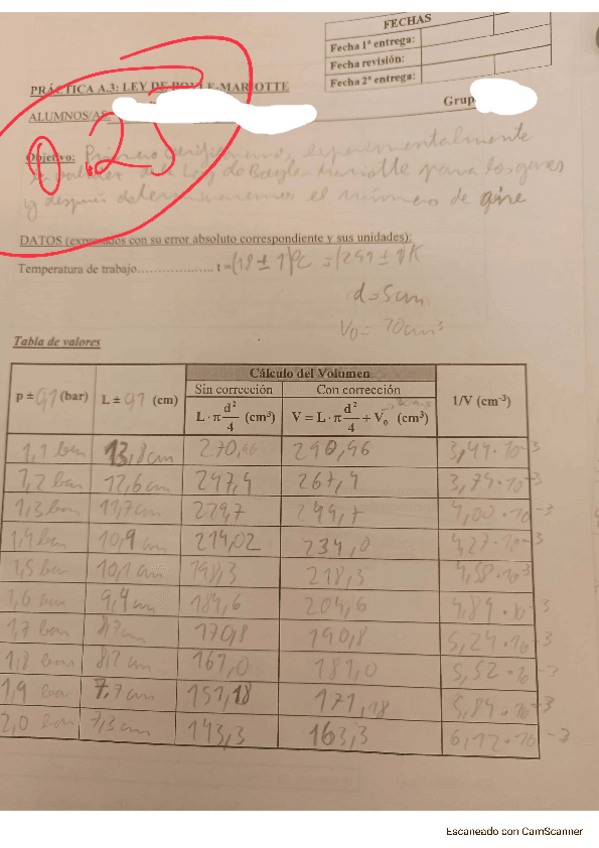 FECHAS
Fecha 1ª entrega:
Fecha revisión:
Fecha 2ª entrega:
PRÁCTICA A.3: LEY DE BOYLE-MARIOTTE
ALUMNOS/AS:
Grup
0.25
Objetivo: Primero verificaremos, experimentalmente
la de la Ley de Boyle-Mariotte para los gases
y después determinaremos el número de
DATOS (expresados con su error absoluto correspondiente y sus unidades):
Temperatura de trabajo.................. t = (18 ± 1)ºC = (291 ± 1)K
d = 5cm
Tabla de valores
Cálculo del Volumen
p ± 0,1 (bar) L ± 0,1 (cm) Sin corrección Con corrección 1/V (cm-3)
L · π d²/4 (cm³) V = L · π d²/4 + V₀ (cm³)
1,1 bar 13,8 cm 270,96 290,96 3,44·10-3
1,2 bar 12,6 cm 247,4 267,4 3,74·10-3
1,3 bar 11,7 cm 229,7 249,7 4,00·10-3
1,4 bar 10,9 cm 214,02 234,0 4,27·10-3
1,5 bar 10,1 cm 198,3 218,3 4,58·10-3
1,6 bar 9,4 cm 184,6 204,6 4,89·10-3
1,7 bar 8,7 cm 170,8 190,8 5,24·10-3
1,8 bar 8,2 cm 161,0 181,0 5,52·10-3
1,9 bar 7,7 cm 151,18 171,18 5,84·10-3
2,0 bar 7,3 cm 143,3 163,3 6,12·10-3
Escaneado con CamScanner